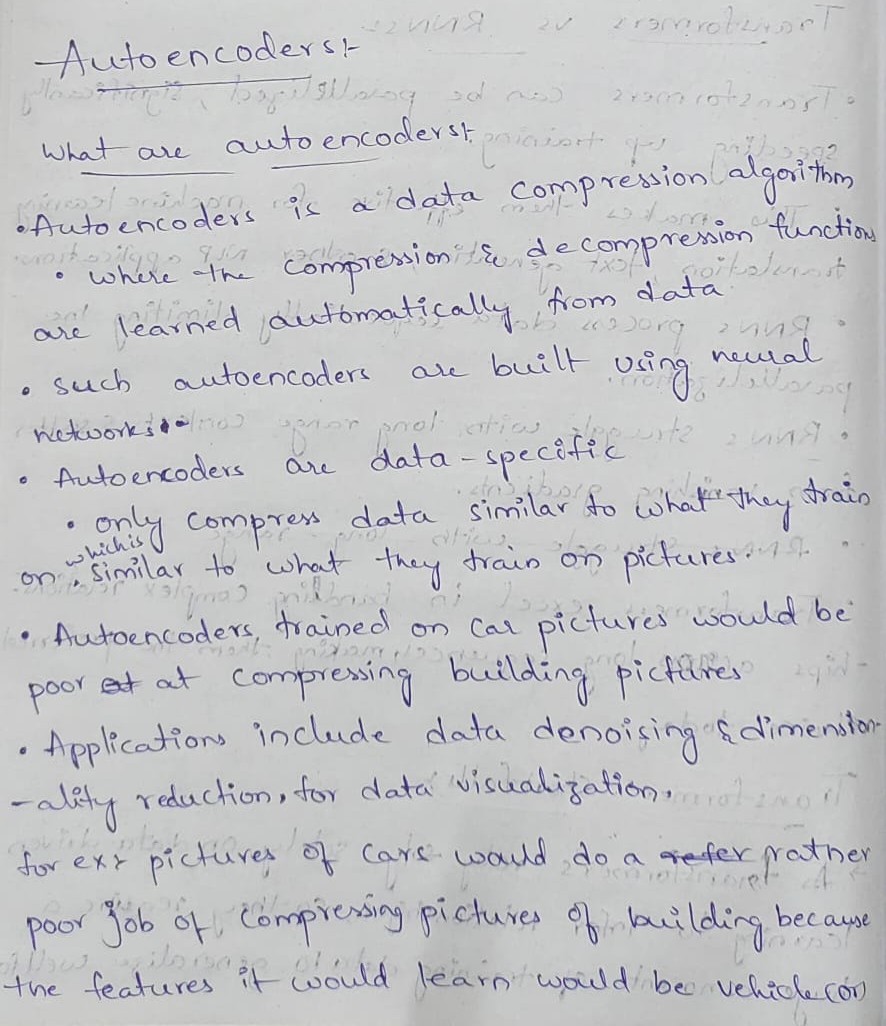 Autoencoders:-
What are autoencoders:-
• Autoencoders is a data compression algorithm
• where the compression & decompression functions
are learned automatically from data
• such autoencoders are built using neural
networks.
• Autoencoders are data-specific
• only compress data similar to what they train
on, which is similar to what they train on pictures.
• Autoencoders, trained on car pictures would be
poor at at compressing building pictures
• Applications include data denoising & dimension-
-ality reduction, for data visualization.
for ex:- pictures of cars would do a refer rather
poor job of compressing pictures of building because
the features it would learn would be vehicle (or)